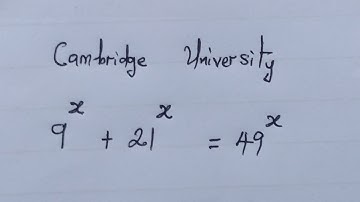 Cambridge University
9^x + 21^x = 49^x